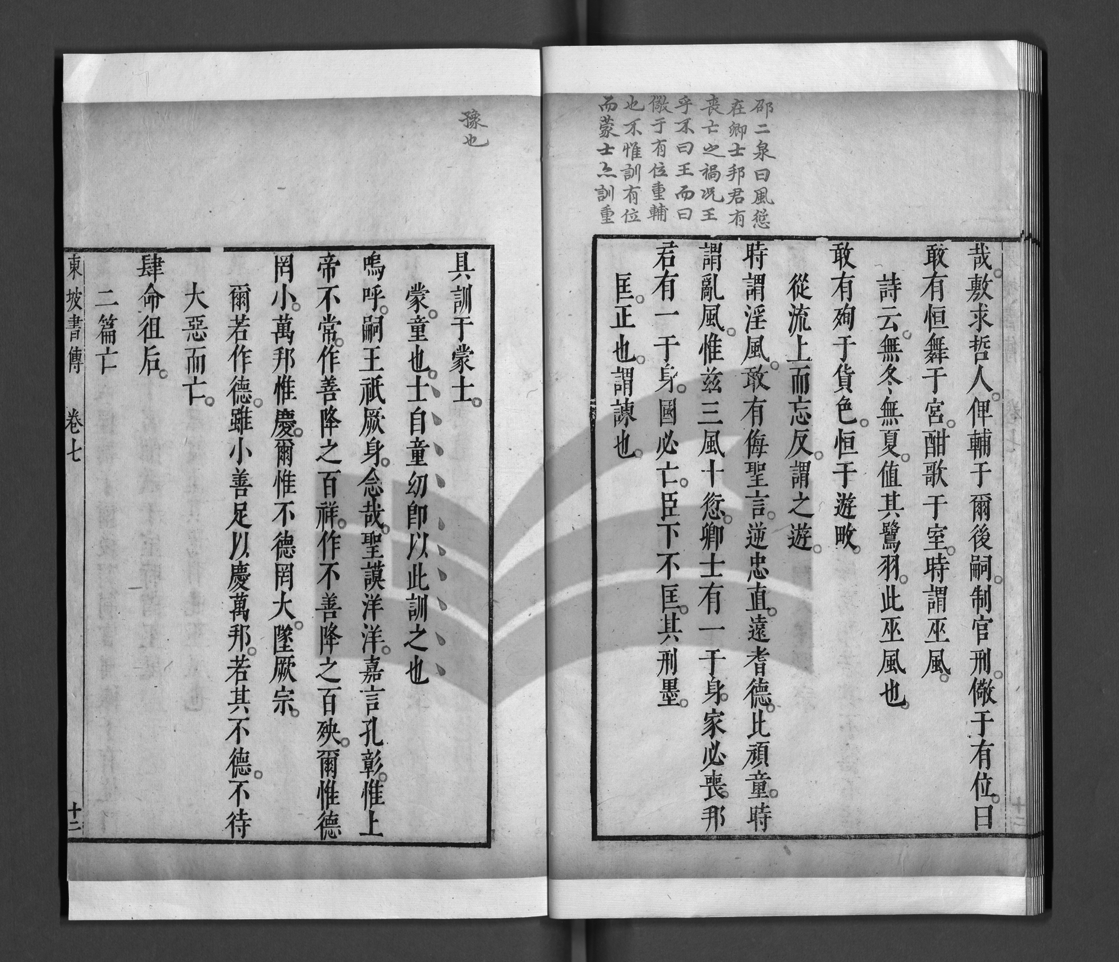 邵二泉曰風愆
在卿士邦君有
喪亡之禍况王
乎不曰王而曰
儆于有位重輔
也不惟訓有位
而蒙士亦訓重
哉。敷求哲人。俾輔于爾後嗣。制官刑。儆于有位。曰
敢有恒舞于宮。酣歌于室。時謂巫風。
詩云。無冬無夏。值其鷺羽。此巫風也。
敢有殉于貨色。恒于遊畋。
從流上而忘反。謂之遊。
時謂淫風。敢有侮聖言。逆忠直。遠耆德。比頑童。時
謂亂風。惟茲三風十愆。卿士有一于身。家必喪。邦
君有一于身。國必亡。臣下不匡。其刑墨。
匡。正也。謂諫也。
豫也
具訓于蒙士。
蒙。童也。士自童幼卽以此訓之也
嗚呼。嗣王祇厥身。念哉。聖謨洋洋。嘉言孔彰。惟上
帝不常。作善降之百祥。作不善降之百殃。爾惟德
罔小。萬邦惟慶。爾惟不德罔大。墜厥宗。
爾若作德。雖小善足以慶萬邦。若其不德。不待
大惡而亡。
肆命徂后。
二篇亡
東坡書傳 卷七 十二